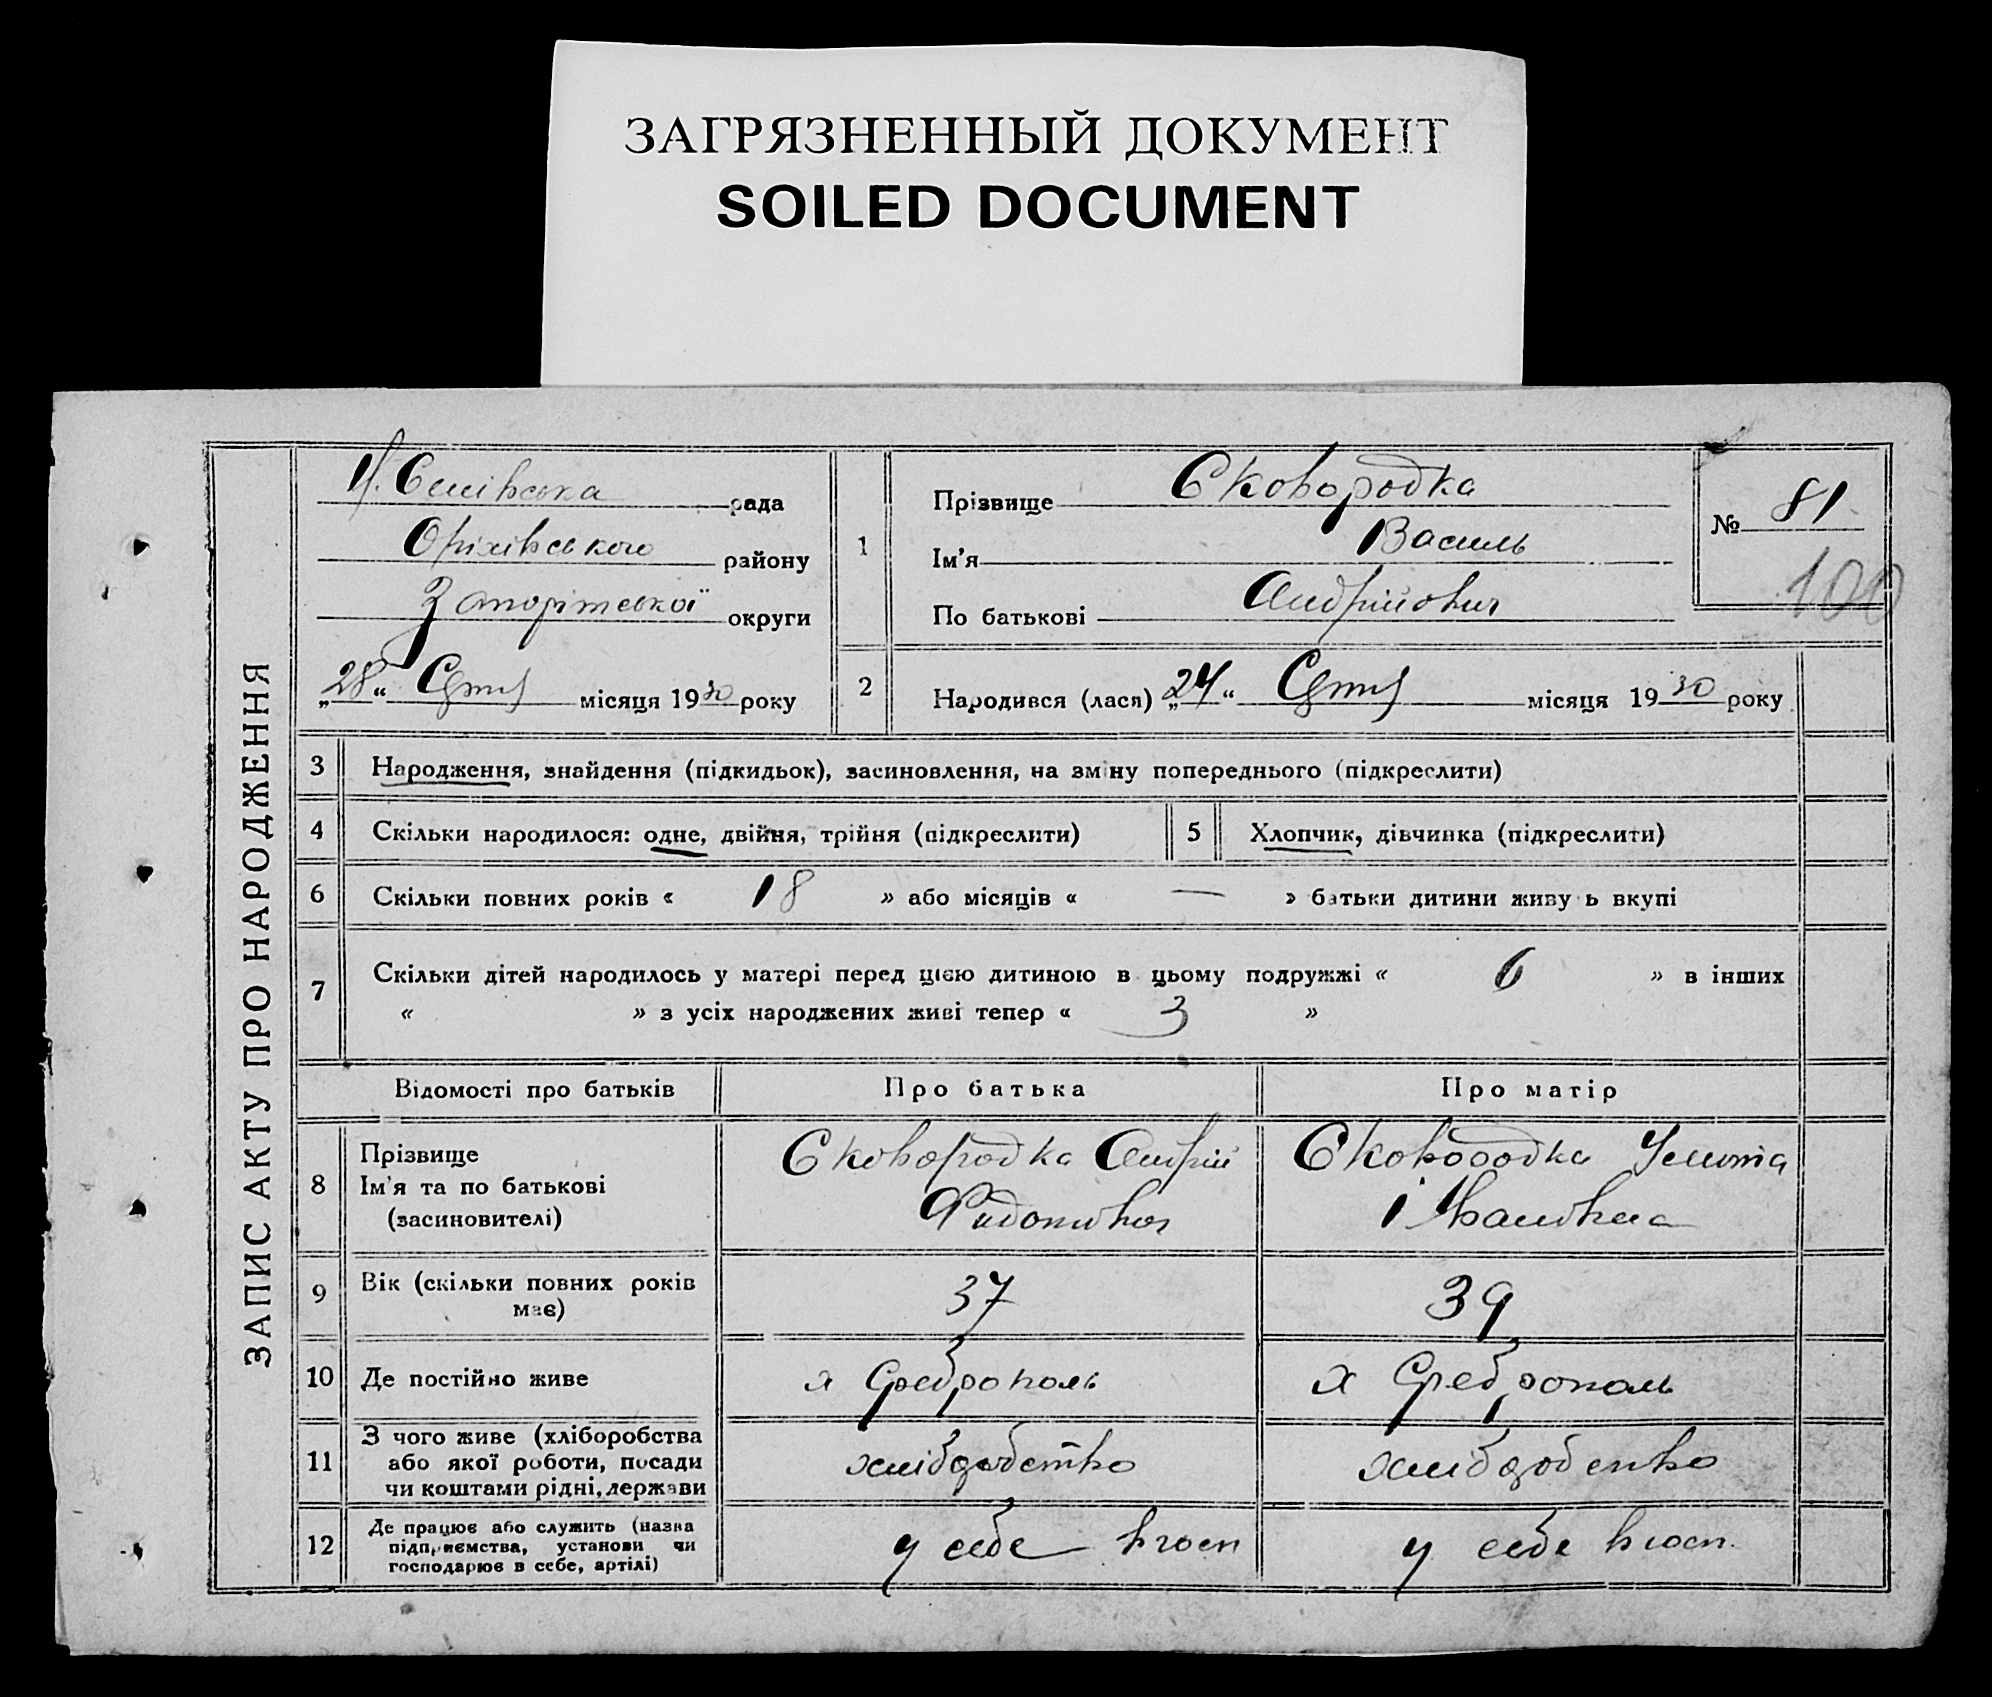 ЗАГРЯЗНЕННЫЙ ДОКУМЕНТ
SOILED DOCUMENT
ЗАПИС АКТУ ПРО НАРОДЖЕННЯ
рада
Оріхівського району
Запоріжської округи
„28“ Српня місяця 1930 року
1
Прізвище Сковородка
Ім'я Василь
По батькові Андрійович
№ 81
100
2 Народився (лася) „24“ Српня місяця 1930 року
3 Народження, знайдення (підкидьок), засиновлення, на зміну попереднього (підкреслити)
4 Скільки народилося: одне, двійня, трійня (підкреслити) 5 Хлопчик, дівчинка (підкреслити)
6 Скільки повних років « 18 » або місяців « — » батьки дитини живуть вкупі
7 Скільки дітей народилось у матері перед цією дитиною в цьому подружжі « 6 » в інших
« » з усіх народжених живі тепер « 3 »
Відомості про батьків Про батька Про матір
8 Прізвище
Ім'я та по батькові
(засиновителі)
Сковородка Андрій
Сковородка
Івановна
9 Вік (скільки повних років
має)
37 39
10 Де постійно живе х Среброполь х Среброполь
11 З чого живе (хліборобства
або якої роботи, посади
чи коштами рідні, держави
хліборобство хліборобство
12 Де працює або служить (назва
підприємства, установи чи
господарює в себе, артілі)
у себе в госп у себе в госп.